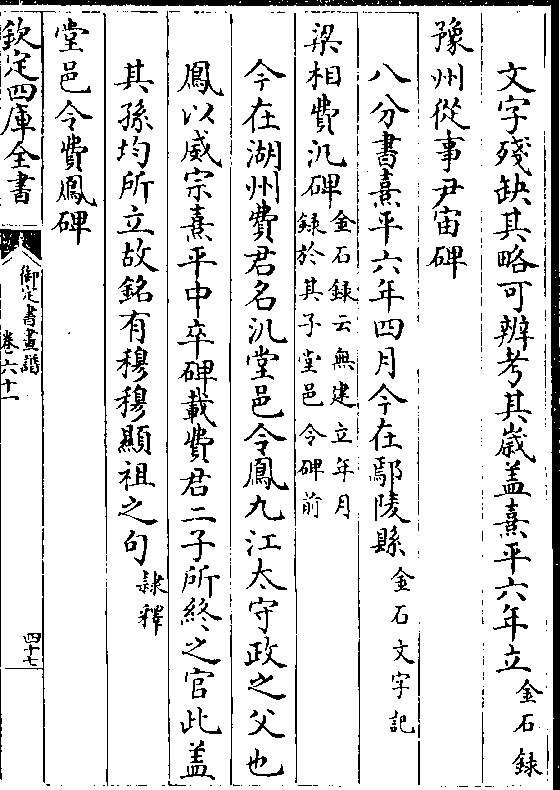 文字殘缺其略可辨考其歳盖熹平六年立金石録
豫州從事尹宙碑
八分書熹平六年四月今在鄢陵縣金石文字記
梁相費汎碑金石録云無建立年月
録於其子堂邑令碑前
今在湖州費君名汎堂邑令鳳九江太守政之父也
鳳以威宗熹平中卒碑載費君二子所終之官此盖
其孫均所立故銘有穆穆顯祖之句隷釋
堂邑令費鳳碑
欽定四庫全書
御定書畫譜
卷六十一
四十七